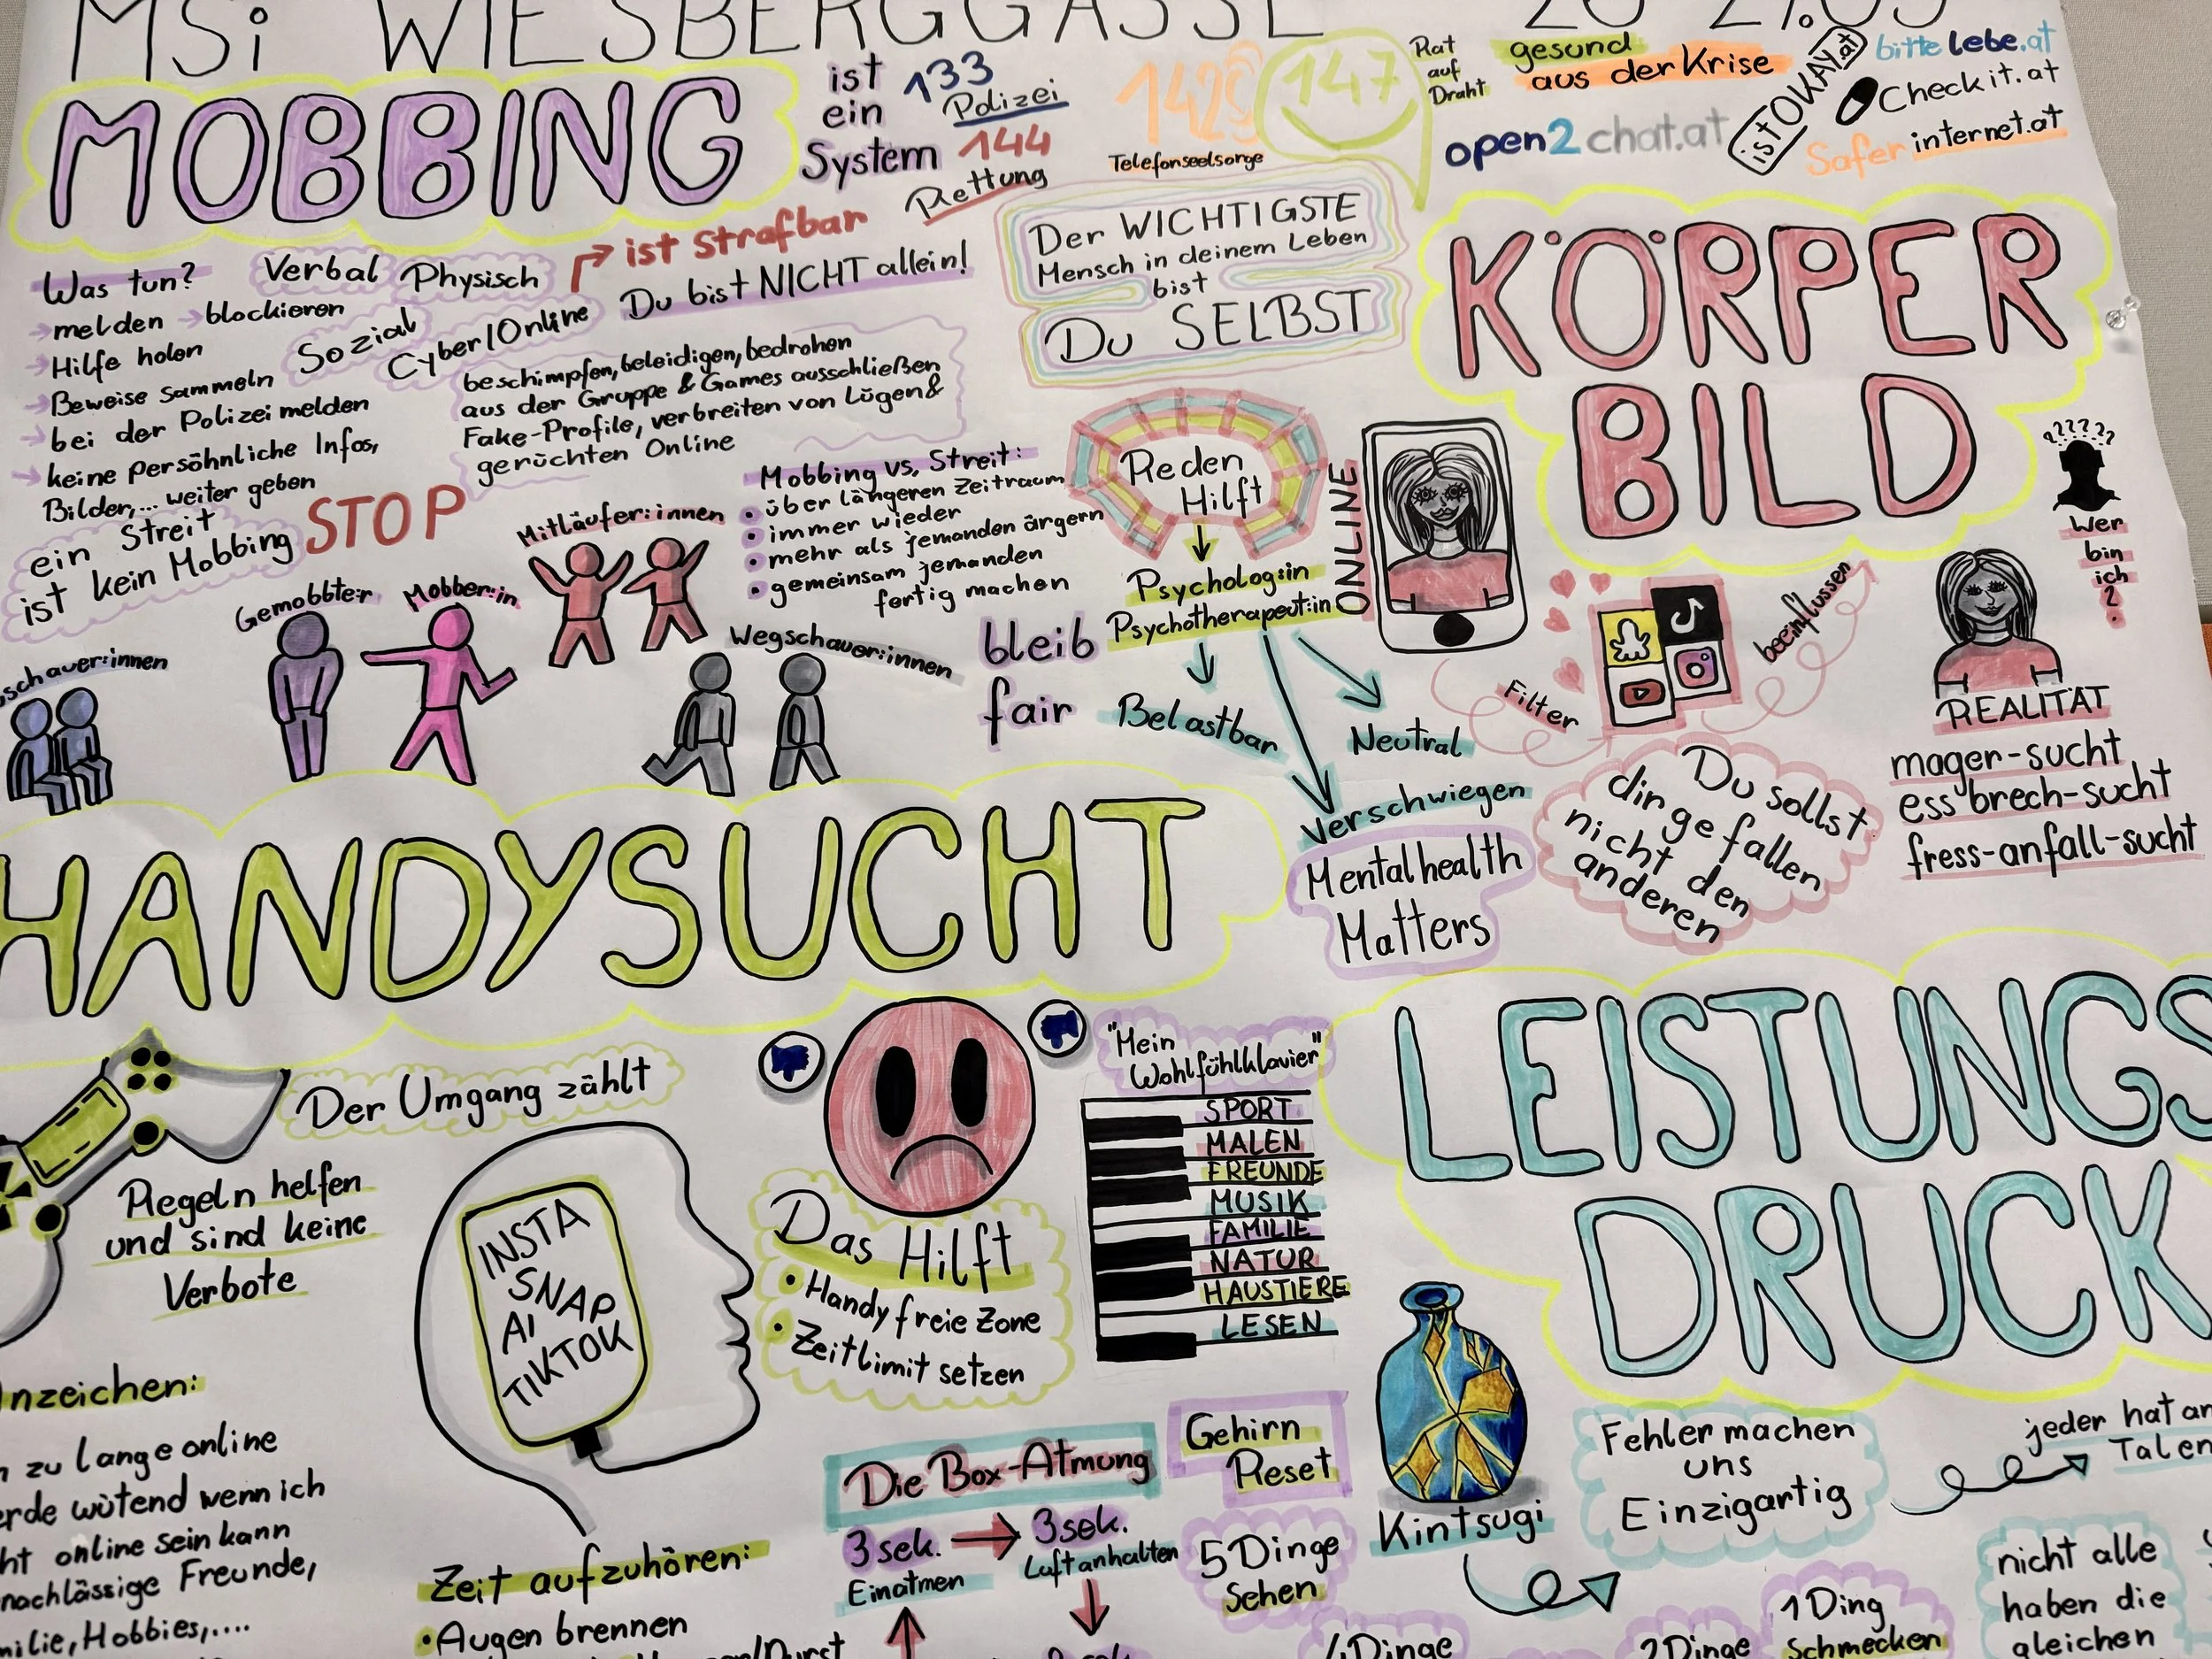 MSi WIESBERGGASSE
MOBBING
ist
ein
System
133
Polizei
144
Rettung
142
Telefonseelsorge
147
Rat
auf
Draht
gesund
aus der Krise
open2chat.at
ist OKAY.at
bittelebe.at
Checkit.at
Saferinternet.at
Was tun?
→melden →blockieren
→Hilfe holen
→Beweise sammeln
→bei der Polizei melden
→keine persöhnliche Infos,
Bilder,... weiter geben
Verbal
Physisch
Sozial
Cyber/Online
ist Strafbar
Du bist NICHT allein!
beschimpfen, beleidigen, bedrohen
aus der Gruppe & Games ausschließen
Fake-Profile, verbreiten von Lügen&
gerüchten Online
Der WICHTIGSTE
Mensch in deinem Leben
bist
Du SELBST
ein Streit
ist kein Mobbing
STOP
Mobbing vs. Streit:
• über längeren Zeitraum
• immer wieder
• mehr als jemanden ärgern
• gemeinsam jemanden
fertig machen
Mitläufer:innen
Gemobbte:r
Mobber:in
schauer:innen
Wegschauer:innen
bleib
fair
Reden
Hilft
Psycholog:in
Psychotherapeut:in
Belastbar
Neutral
Verschwiegen
Mentalhealth
Matters
KÖRPER
BILD
ONLINE
Filter
beeinflussen
??????
Wer
bin
ich
?
REALITÄT
mager-sucht
ess brech-sucht
fress-anfall-sucht
Du sollst
dir gefallen
nicht den
anderen
HANDYSUCHT
Der Umgang zählt
Regeln helfen
und sind keine
Verbote
INSTA
SNAP
AI
TIKTOK
Das Hilft
• Handy freie Zone
• Zeitlimit setzen
"Mein
Wohlfühlklavier"
SPORT
MALEN
FREUNDE
MUSIK
FAMILIE
NATUR
HAUSTIERE
LESEN
nzeichen:
zu lange online
rde wütend wenn ich
ht online sein kann
nachlässige Freunde,
milie, Hobbies,....
Zeit aufzuhören:
• Augen brennen
Die Box-Atmung
3sek.
Einatmen
3sek.
Luftanhalten
Gehirn
Reset
5 Dinge
Sehen
4 Dinge
2 Dinge
1 Ding
Schmecken
LEISTUNGS
DRUCK
Kintsugi
Fehler machen
uns
Einzigartig
jeder hat an
Talen
nicht alle
haben die
gleichen